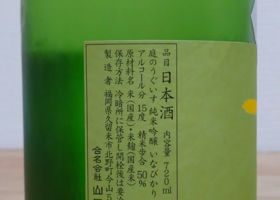 品目 日本酒 内容量 720ml
庭のうぐいす 純米吟醸 いなびかり
アルコール分 15度 精米歩合 50%
原材料名 米(国産)・米麹(国産米)
保存方法 冷暗所に保管し開栓後は要冷
製造者 福岡県久留米市北野町今山5
合名会社 山口